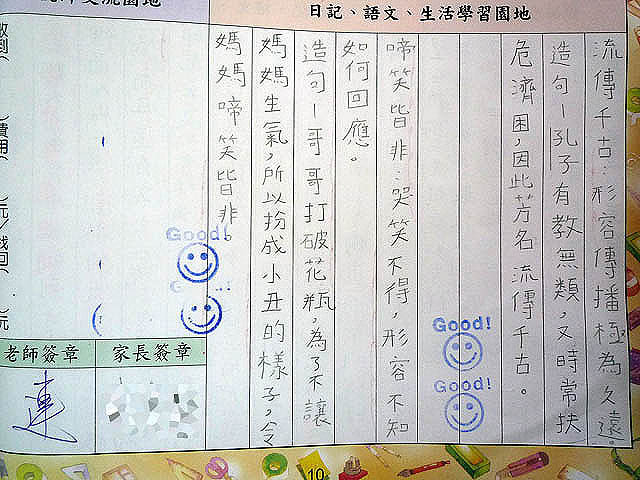 日記、語文、生活學習園地
流傳千古:形容傳播極為久遠。
造句—孔子有教無類,又時常扶
危濟困,因此芳名流傳千古。
啼笑皆非:哭笑不得,形容不知
如何回應。
造句—哥哥打破花瓶,為了不讓
媽媽生氣,所以扮成小丑的樣子,令
媽媽啼笑皆非。
Good!
Good!
Good!
老師簽章
家長簽章
連
10